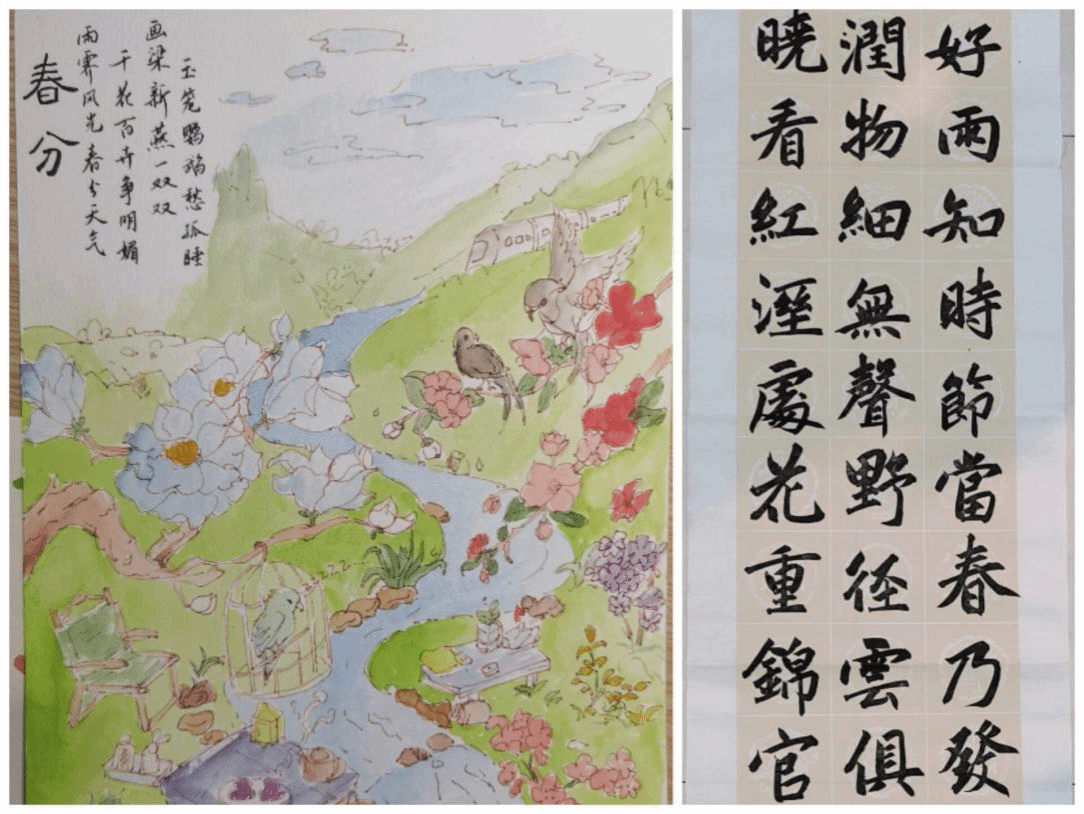 春分
雨霁风光春分天气
千花百卉争明媚
画梁新燕一双双
玉笼鹦鹉愁孤睡
好雨知時節當春乃發
潤物細無聲野径雲俱
曉看紅溼處花重錦官